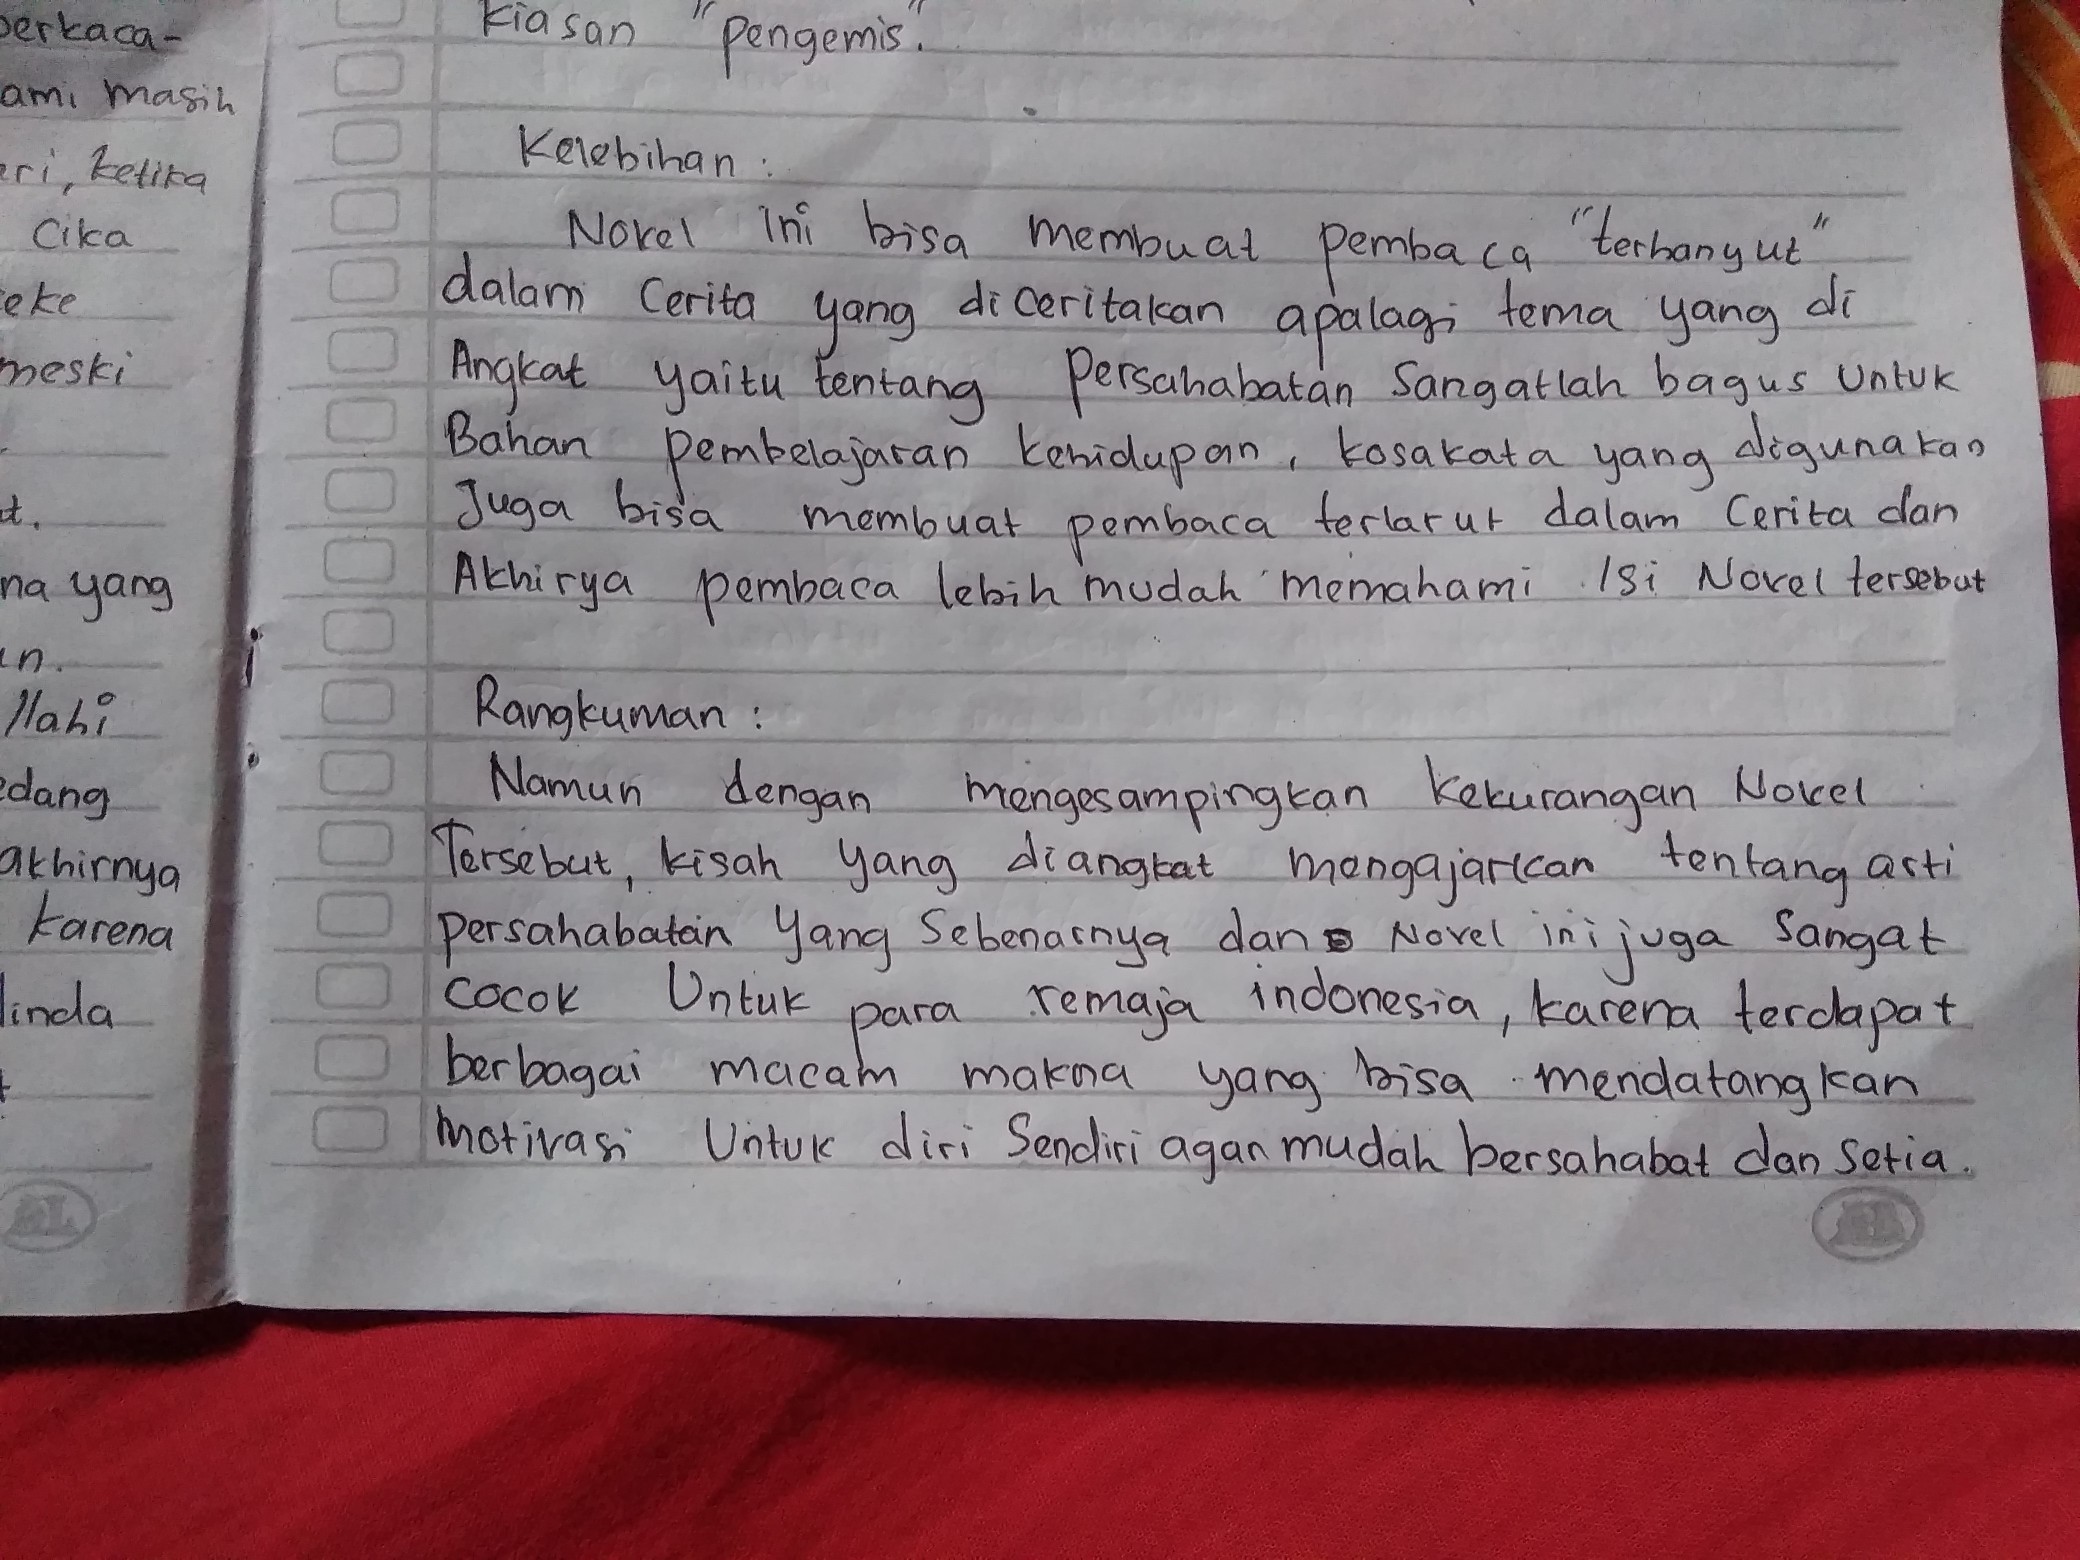 berkaca-
ami masih
eri, ketika
Cika
eke
meski
t.
na yang
in.
llahi
edang
akhirnya
karena
linda
kiasan "pengemis".
Kelebihan :
Novel ini bisa membuat pembaca "terhanyut"
dalam Cerita yang diceritakan apalagi tema yang di
Angkat yaitu tentang Persahabatan Sangatlah bagus Untuk
Bahan pembelajaran kehidupan, kosakata yang digunakan
Juga bisa membuat pembaca terlarut dalam Cerita dan
Akhirya pembaca lebih mudah memahami Isi Novel tersebut
Rangkuman :
Namun dengan mengesampingkan kekurangan Novel
Tersebut, kisah yang diangkat mengajarkan tentang arti
persahabatan Yang Sebenarnya dan Novel ini juga Sangat
cocok Untuk para remaja indonesia, karena terdapat
berbagai macam makna yang bisa mendatangkan
motivasi Untuk diri Sendiri agan mudah bersahabat dan Setia.